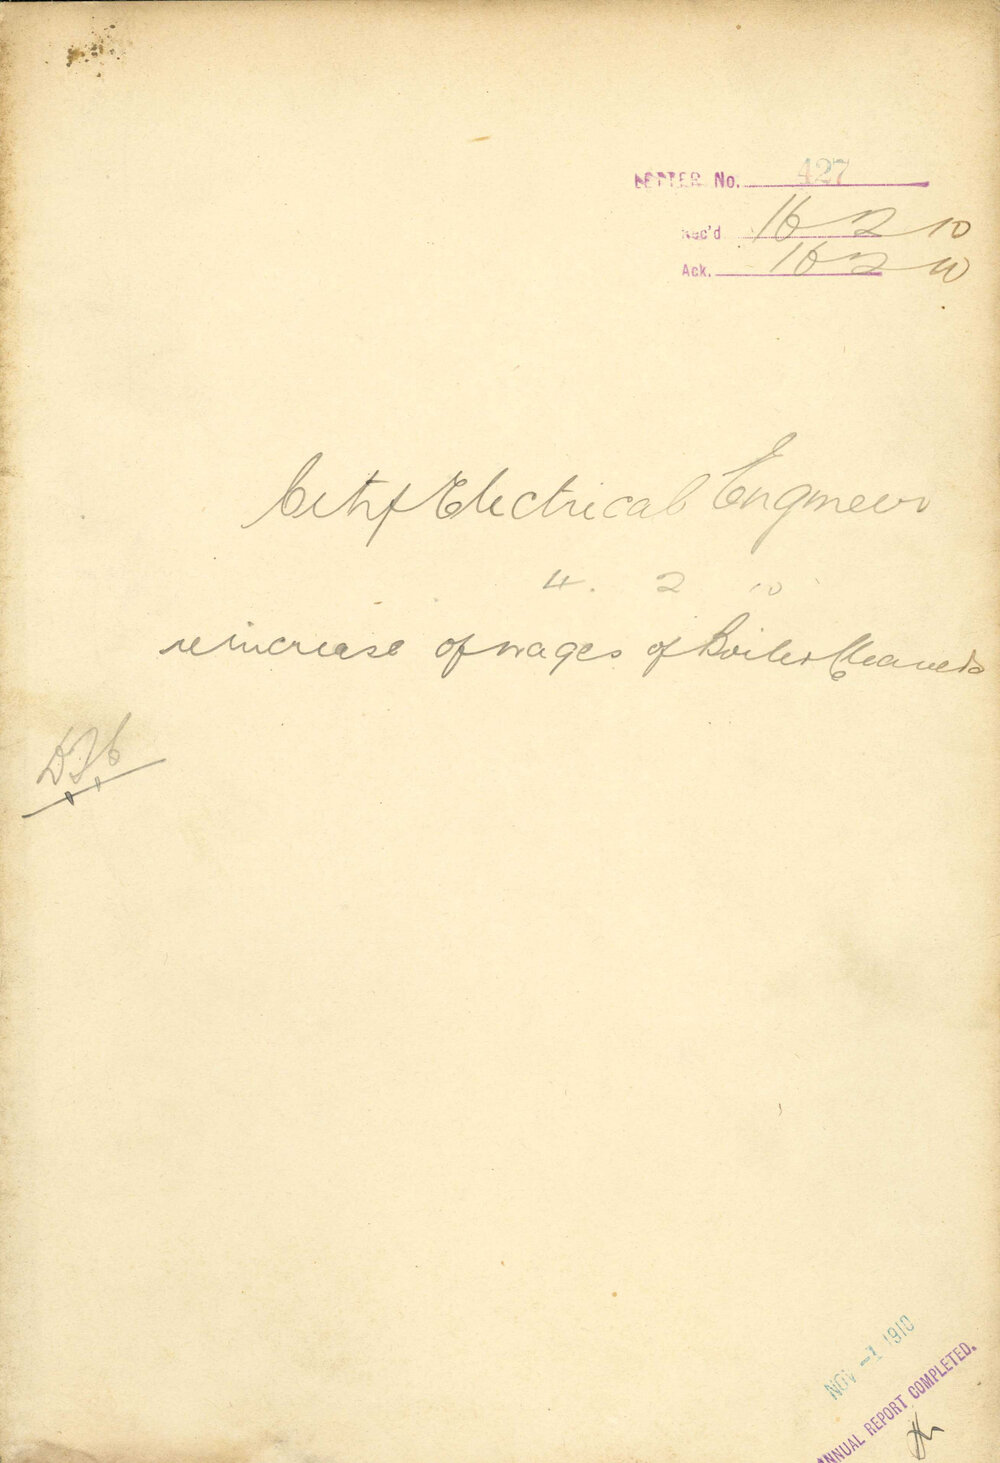 LETTER No. 427
Rec'd 16 2 10
Ack. 16 2 10
City Electrical Engineer
4. 2 10
re increase of wages of Boiler Cleaners
NOV -1 1910
ANNUAL REPORT COMPLETED.